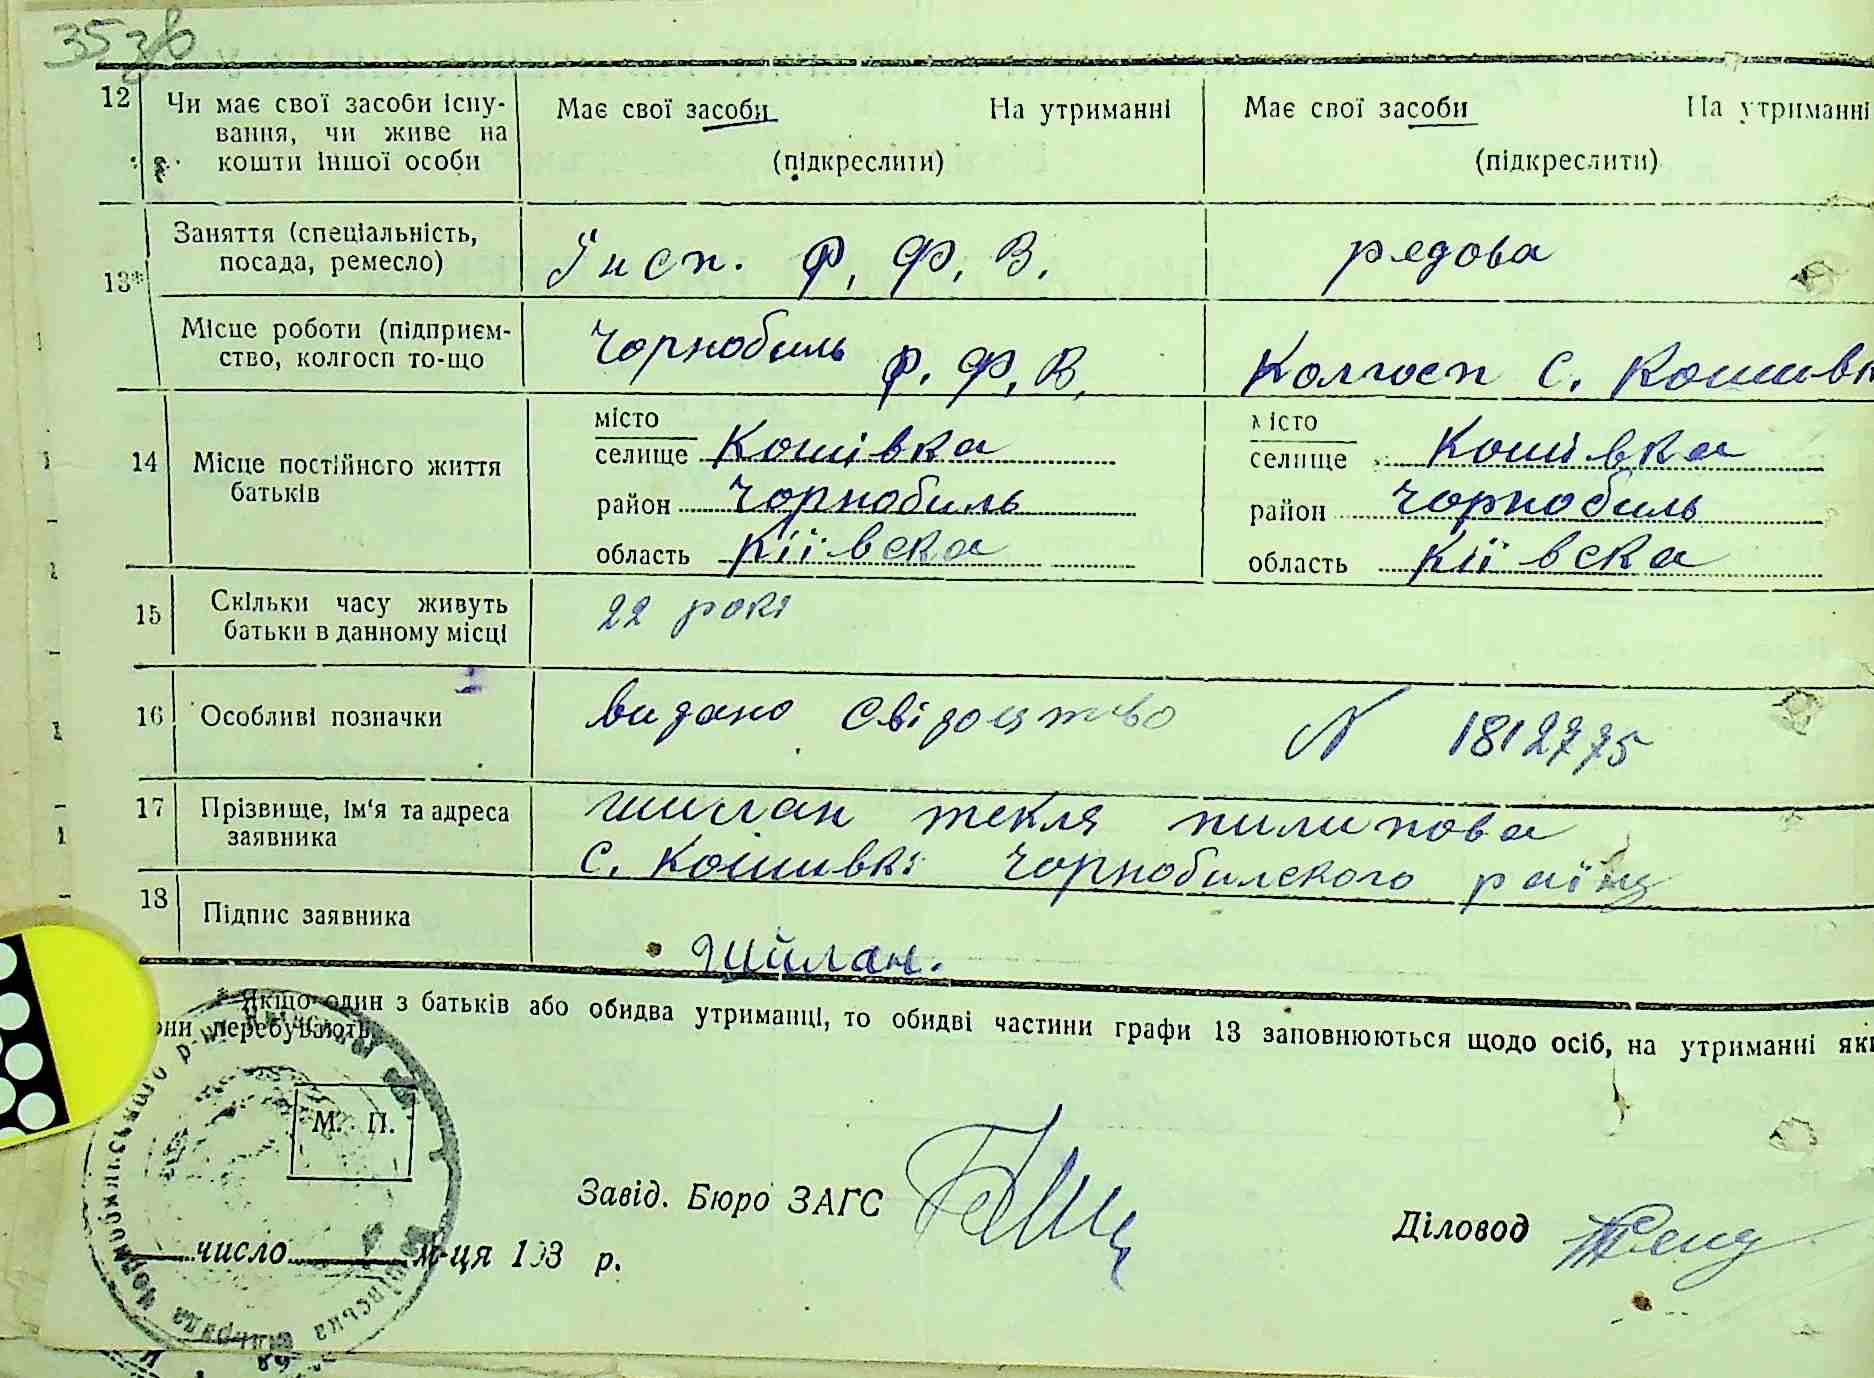 35 зв
12 Чи має свої засоби існу- Має свої засоби На утриманні Має свої засоби На утриманні
вання, чи живе на
кошти іншої особи (підкреслити) (підкреслити)
13* Заняття (спеціальність, Інсп. Р. Ф. В. рядова
посада, ремесло)
Місце роботи (підприєм- Чорнобиль Р. Ф. В. Колгосп с. Кошивк
ство, колгосп то-що
14 Місце постійного життя місто місто
батьків селище Кошівка селище Кошівка
район Чорнобиль район Чорнобиль
область Кіївска область Кіївска
15 Скільки часу живуть 22 рокі
батьки в данному місці
16 Особливі позначки видано свідоцтво N 1812775
17 Прізвище, ім'я та адреса Шилан текля пилипова
заявника с. Кошивкі Чорнобилского
18 Підпис заявника Шилан.
* Якщо один з батьків або обидва утриманці, то обидві частини графи 13 заповнюються щодо осіб, на утриманні яки
они перебувають.
М. П.
Завід. Бюро ЗАГС
Діловод
число м-ця 193 р.